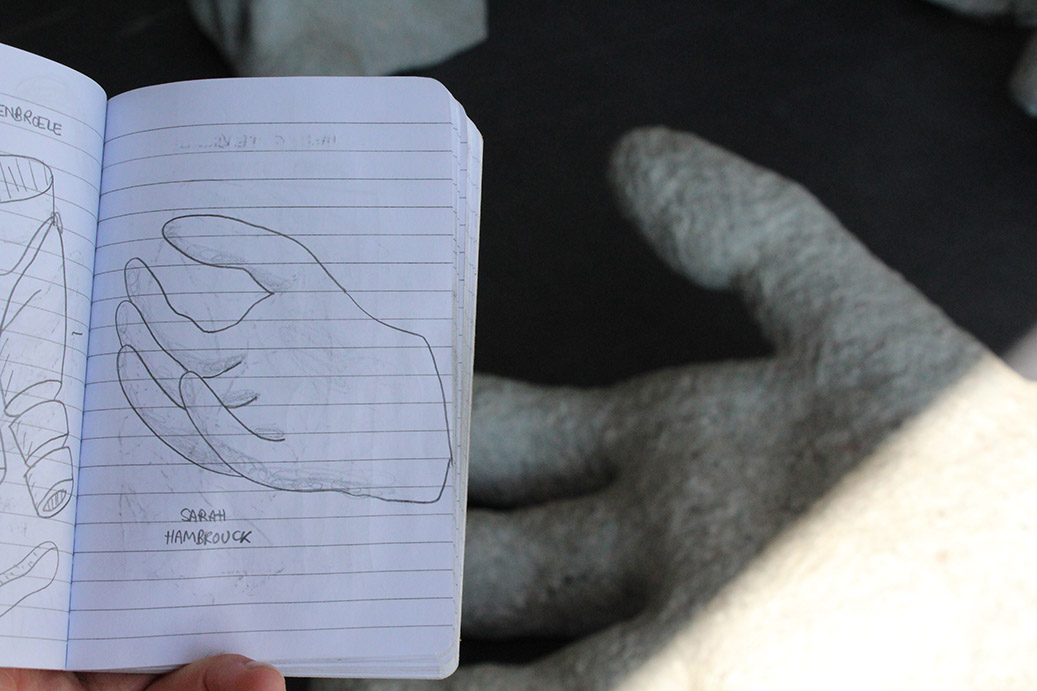 ENBROELE
SARAH
HAMBROUCK